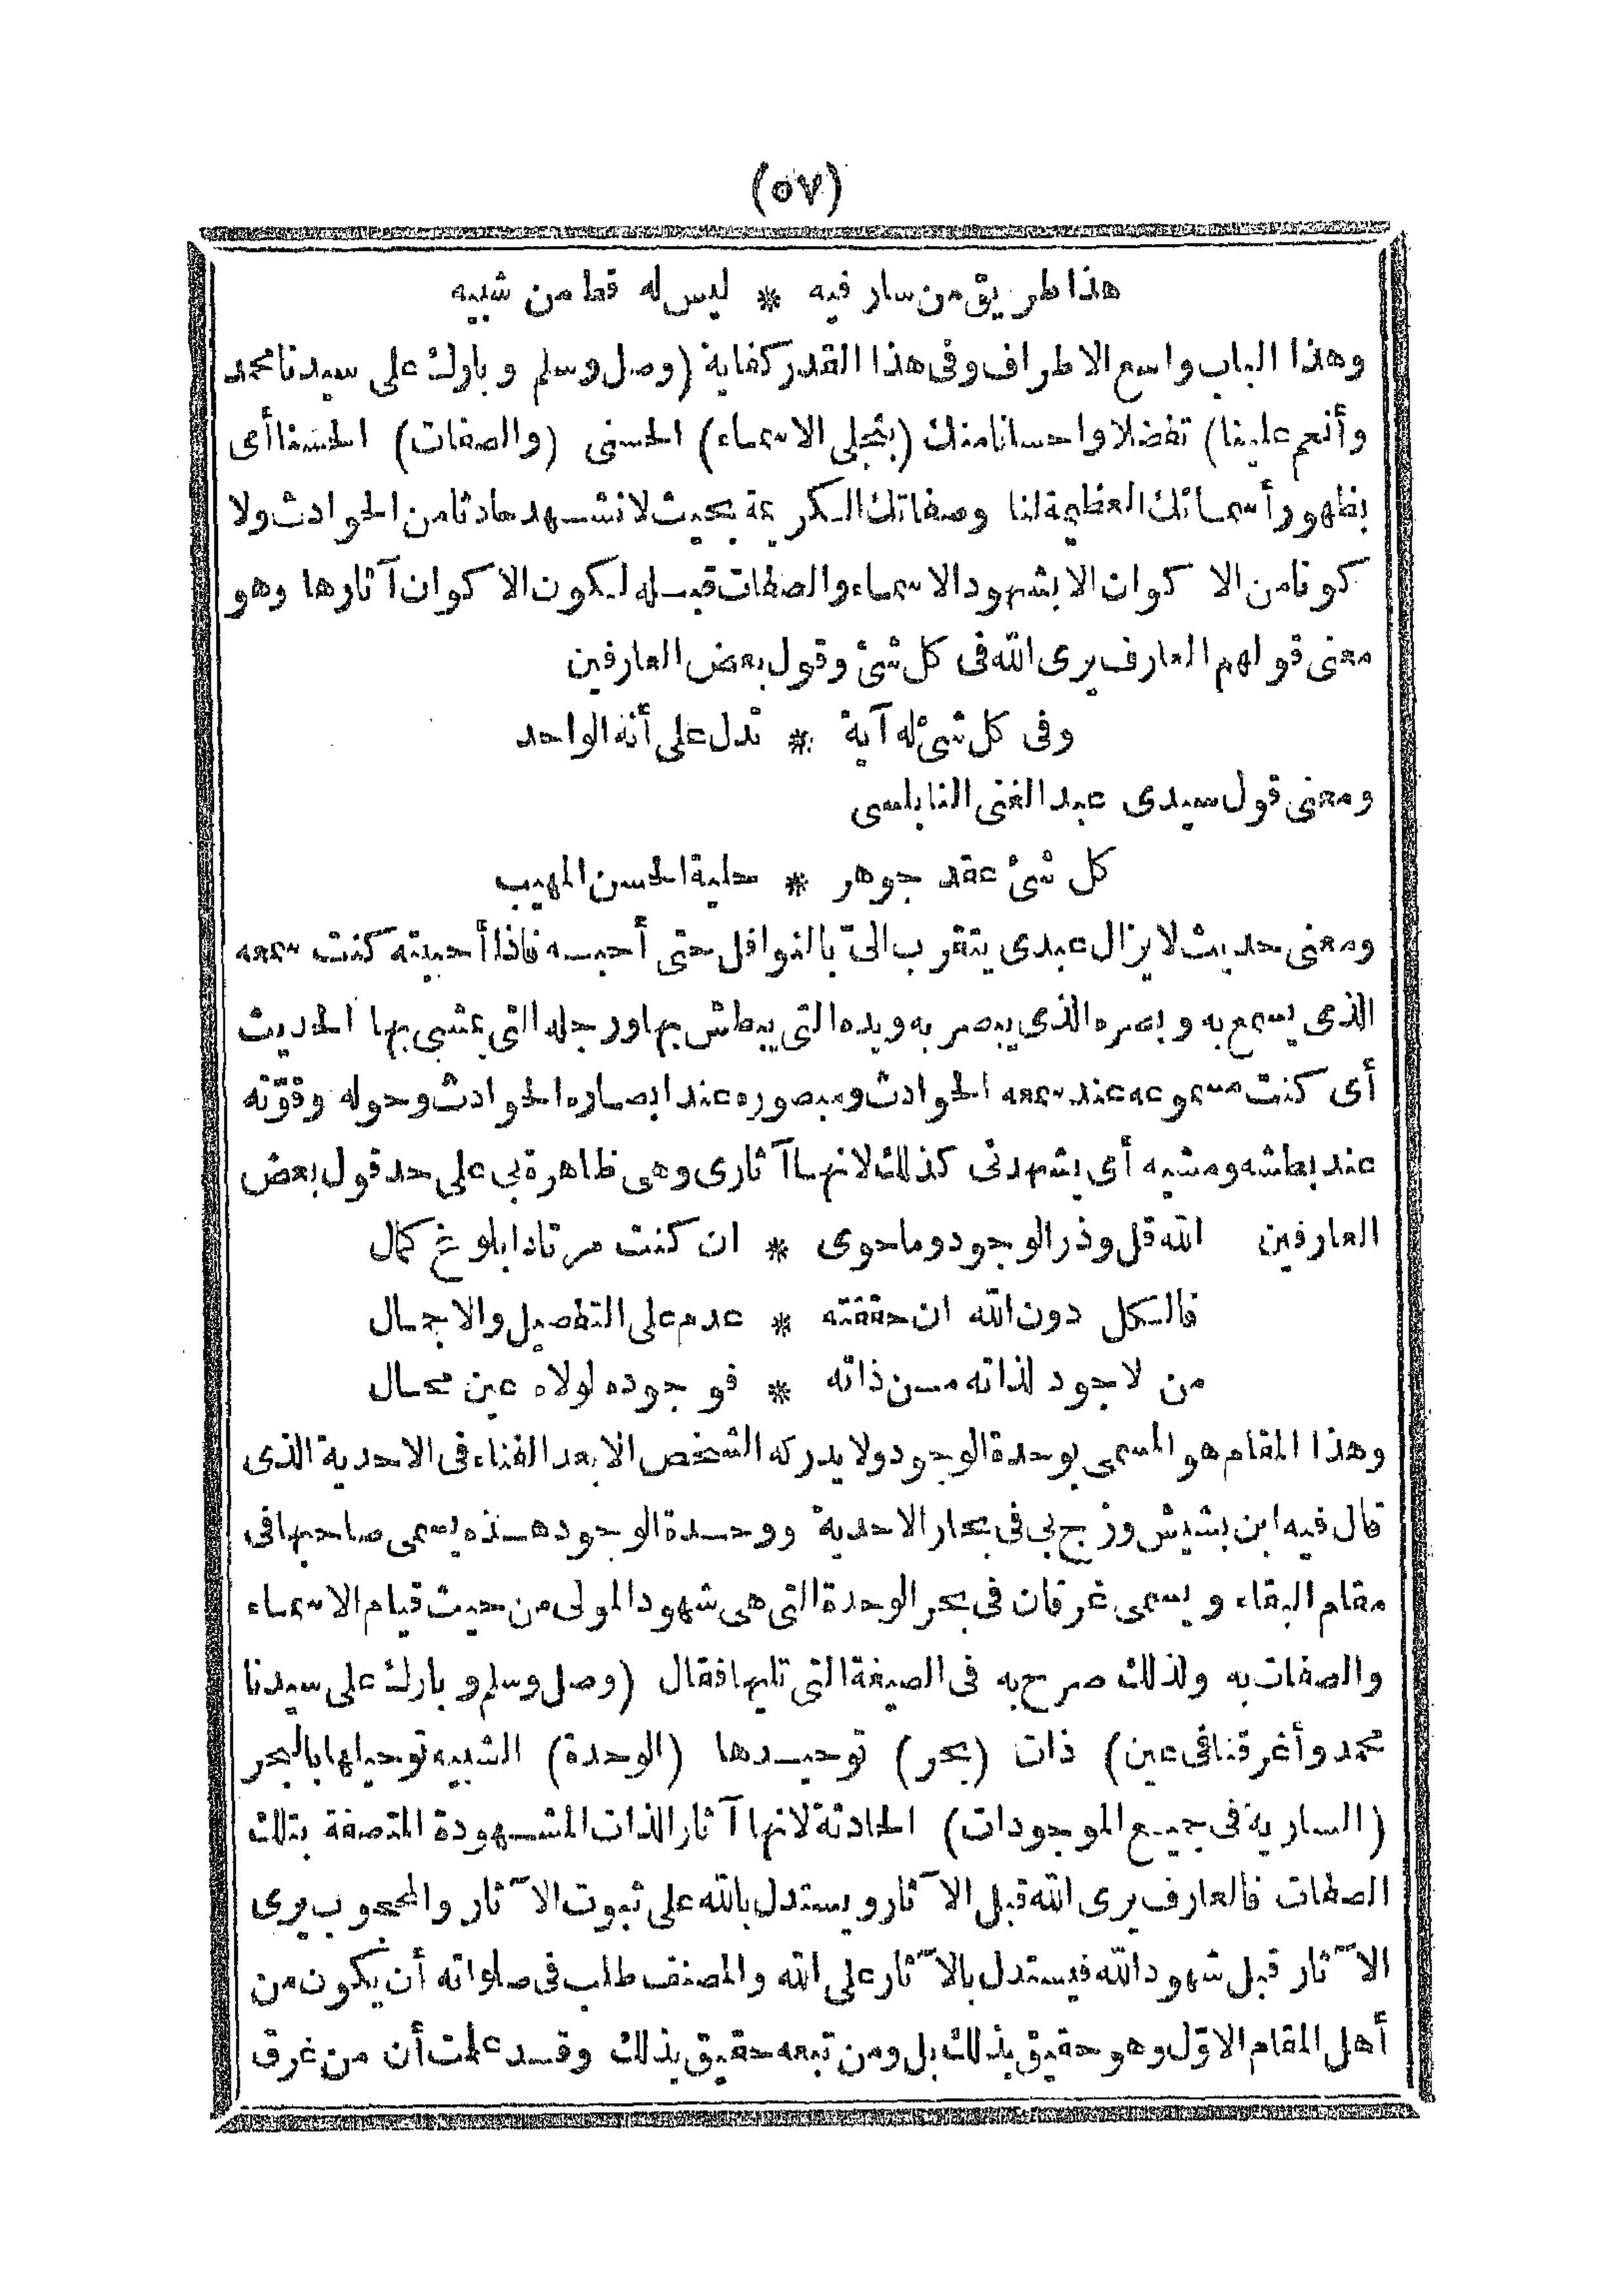 (٥٧)
هذا طريق من سار فيه * ليس له قط من شبيه
وهذا الباب واسع الاطراف وفى هذا القدر كفاية (وصل وسلم وبارك على سيدنا محمد
وأنعم علينا) تفضلا واحسانا منك (بتجلى الاسماء) الحسنى (والصفات) الحسنا أى
بظهور أسمائك العظيمة لنا وصفاتك الكريمة بحيث لانشهد حادثا من الحوادث ولا
كونا من الا كوان الا بشهود الاسماء والصفات قبله لكون الا كوان آثارها وهو
معنى قولهم العارف يرى الله فى كل شئ وقول بعض العارفين
وفى كل شئ له آية * تدل على أنه الواحد
ومعنى قول سيدى عبد الغنى النابلسى
كل شئ عقد جوهر * حلية الحسن المهيب
ومعنى حديث لايزال عبدى يتقرب الىّ بالنوافل حتى أحبه فاذا أحببته كنت سمعه
الذى يسمع به وبصره الذى يبصر به ويده التى يبطش بها ورجله التى يمشى بها الحديث
أى كنت مسموعه عند سمعه الحوادث ومبصوره عند ابصاره الحوادث وحوله وقوّته
عند بطشه ومشيه أى يشهدنى كذلك لانها آثارى وهى ظاهرة بى على حد قول بعض
العارفين الله قل وذر الوجود وما حوى * ان كنت مرتادا بلوغ كمال
فالكل دون الله ان حققته * عدم على التفصيل والاجمال
من لاجود لذاته من ذاته * فوجوده لولاه عين محال
وهذا المقام هو المسمى بوحدة الوجود ولا يدركه الشخص الا بعد الفناء فى الاحدية الذى
قال فيه ابن بشيش وزج بى فى بحار الاحدية ووحدة الوجود هذه يسمى صاحبها فى
مقام البقاء ويسمى غرقان فى بحر الوحدة التى هى شهود المولى من حيث قيام الاسماء
والصفات به ولذلك صرح به فى الصيغة التى تليها فقال (وصل وسلم وبارك على سيدنا
محمد وأغرقنا فى عين) ذات (بحر) توحيدها (الوحدة) الشبيه توحيلها بالبحر
(السارية فى جميع الموجودات) الحادثة لانها آثار الذات المشهودة المتصفة بتلك
الصفات فالعارف يرى الله قبل الآثار ويستدل بالله على ثبوت الآثار والمحجوب يرى
الآثار قبل شهود الله فيستدل بالآثار على الله والمصنف طلب فى صلواته أن يكون من
أهل المقام الاوّل وهو حقيق بذلك بل ومن تبعه حقيق بذلك وقد علمت أن من غرق